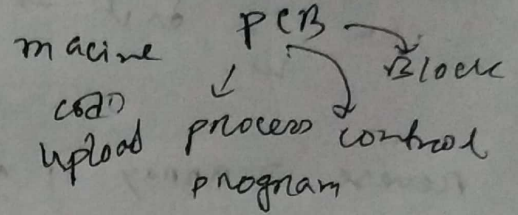 PCB
macine Block
code
upload process control
program